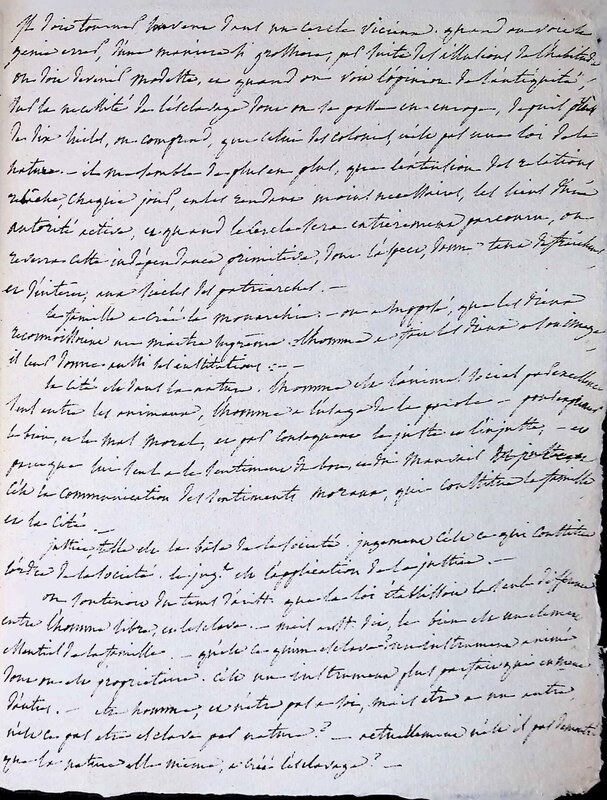 doit tourner souvent dans un cercle vicieux, quand on voit le
genie errer, d'une maniere si grossiere, par suite des illusions de l'habitude
on doit devenir modeste, et quand on voit l'opinion de l'antiquité,
sur la necessité de l'esclavage dont on se passe en europe, depuis plus
de dix siecles, on comprend, que celui des colonies, n'est pas une loi de la
nature. — il me semble de plus en plus, que l'extension des relations
relache, chaque jour, en les rendant moins necessaires, les liens d'une
autorité active, et quand le cercle sera entierement parcouru, on
reverra cette indépendance primitive, dont l'aspect, donne tant de fraicheur
et d'interet, aux siecles des patriarches. —
la famille a créé la monarchie. — on a supposé, que les dieux
reconnoissoient un maitre supreme. l'homme a fait les dieux a son image
il leur donne aussi ses institutions. — —
la cité est dans la nature. l'homme est l'animal social par excellence
seul entre les animaux, l'homme a l'usage de la parole — pour exprimer
le bien, et le mal moral, et par consequent le juste et l'injuste, — et
parce que lui seul a le sentiment du bon, et du mauvais
c'est la communication des sentiments moraux, qui constitue la famille
et la cité. —
justice telle est la base de la société. jugement c'est ce qui constitue
l'ordre de la société. le jugt. est l'application de la justice. —
on soutenoit du tems d'arist. que la loi etablissoit la seule difference
entre l'homme libre, et l'esclave. — mais arist. dit, le bien est un element
essentiel de la famille — qu'est ce qu'un esclave? un instrument animé
dont on est proprietaire. c'est un instrument plus parfait que
d'autres. — etre homme, et n'etre pas a soi, mais etre a un autre,
n'est ce pas etre esclave par nature? — actuellement n'est il pas demontré
que la nature elle meme, a créé l'esclavage? —